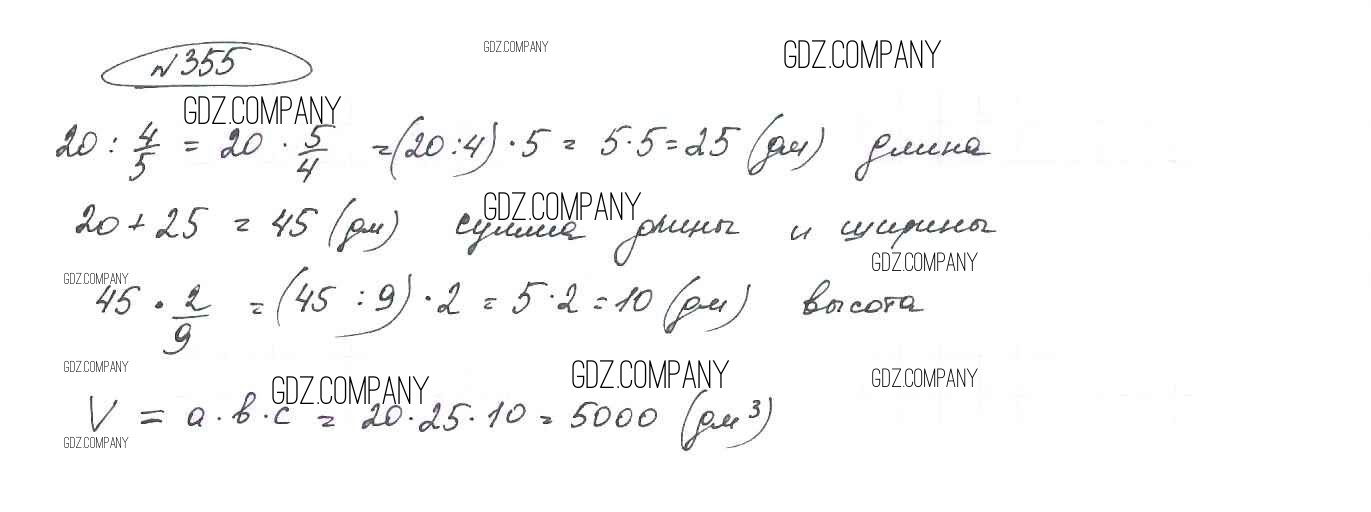 GDZ.COMPANY
GDZ.COMPANY
№355
GDZ.COMPANY
20 : 4/5 = 20 · 5/4 = (20:4) · 5 = 5·5 = 25 (дм) длина
GDZ.COMPANY
20 + 25 = 45 (дм) сумма длины и ширины
GDZ.COMPANY
GDZ.COMPANY
45 · 2/9 = (45 : 9) · 2 = 5·2 = 10 (дм) высота
GDZ.COMPANY
GDZ.COMPANY
GDZ.COMPANY
GDZ.COMPANY
V = a·b·c = 20·25·10 = 5000 (дм³)
GDZ.COMPANY